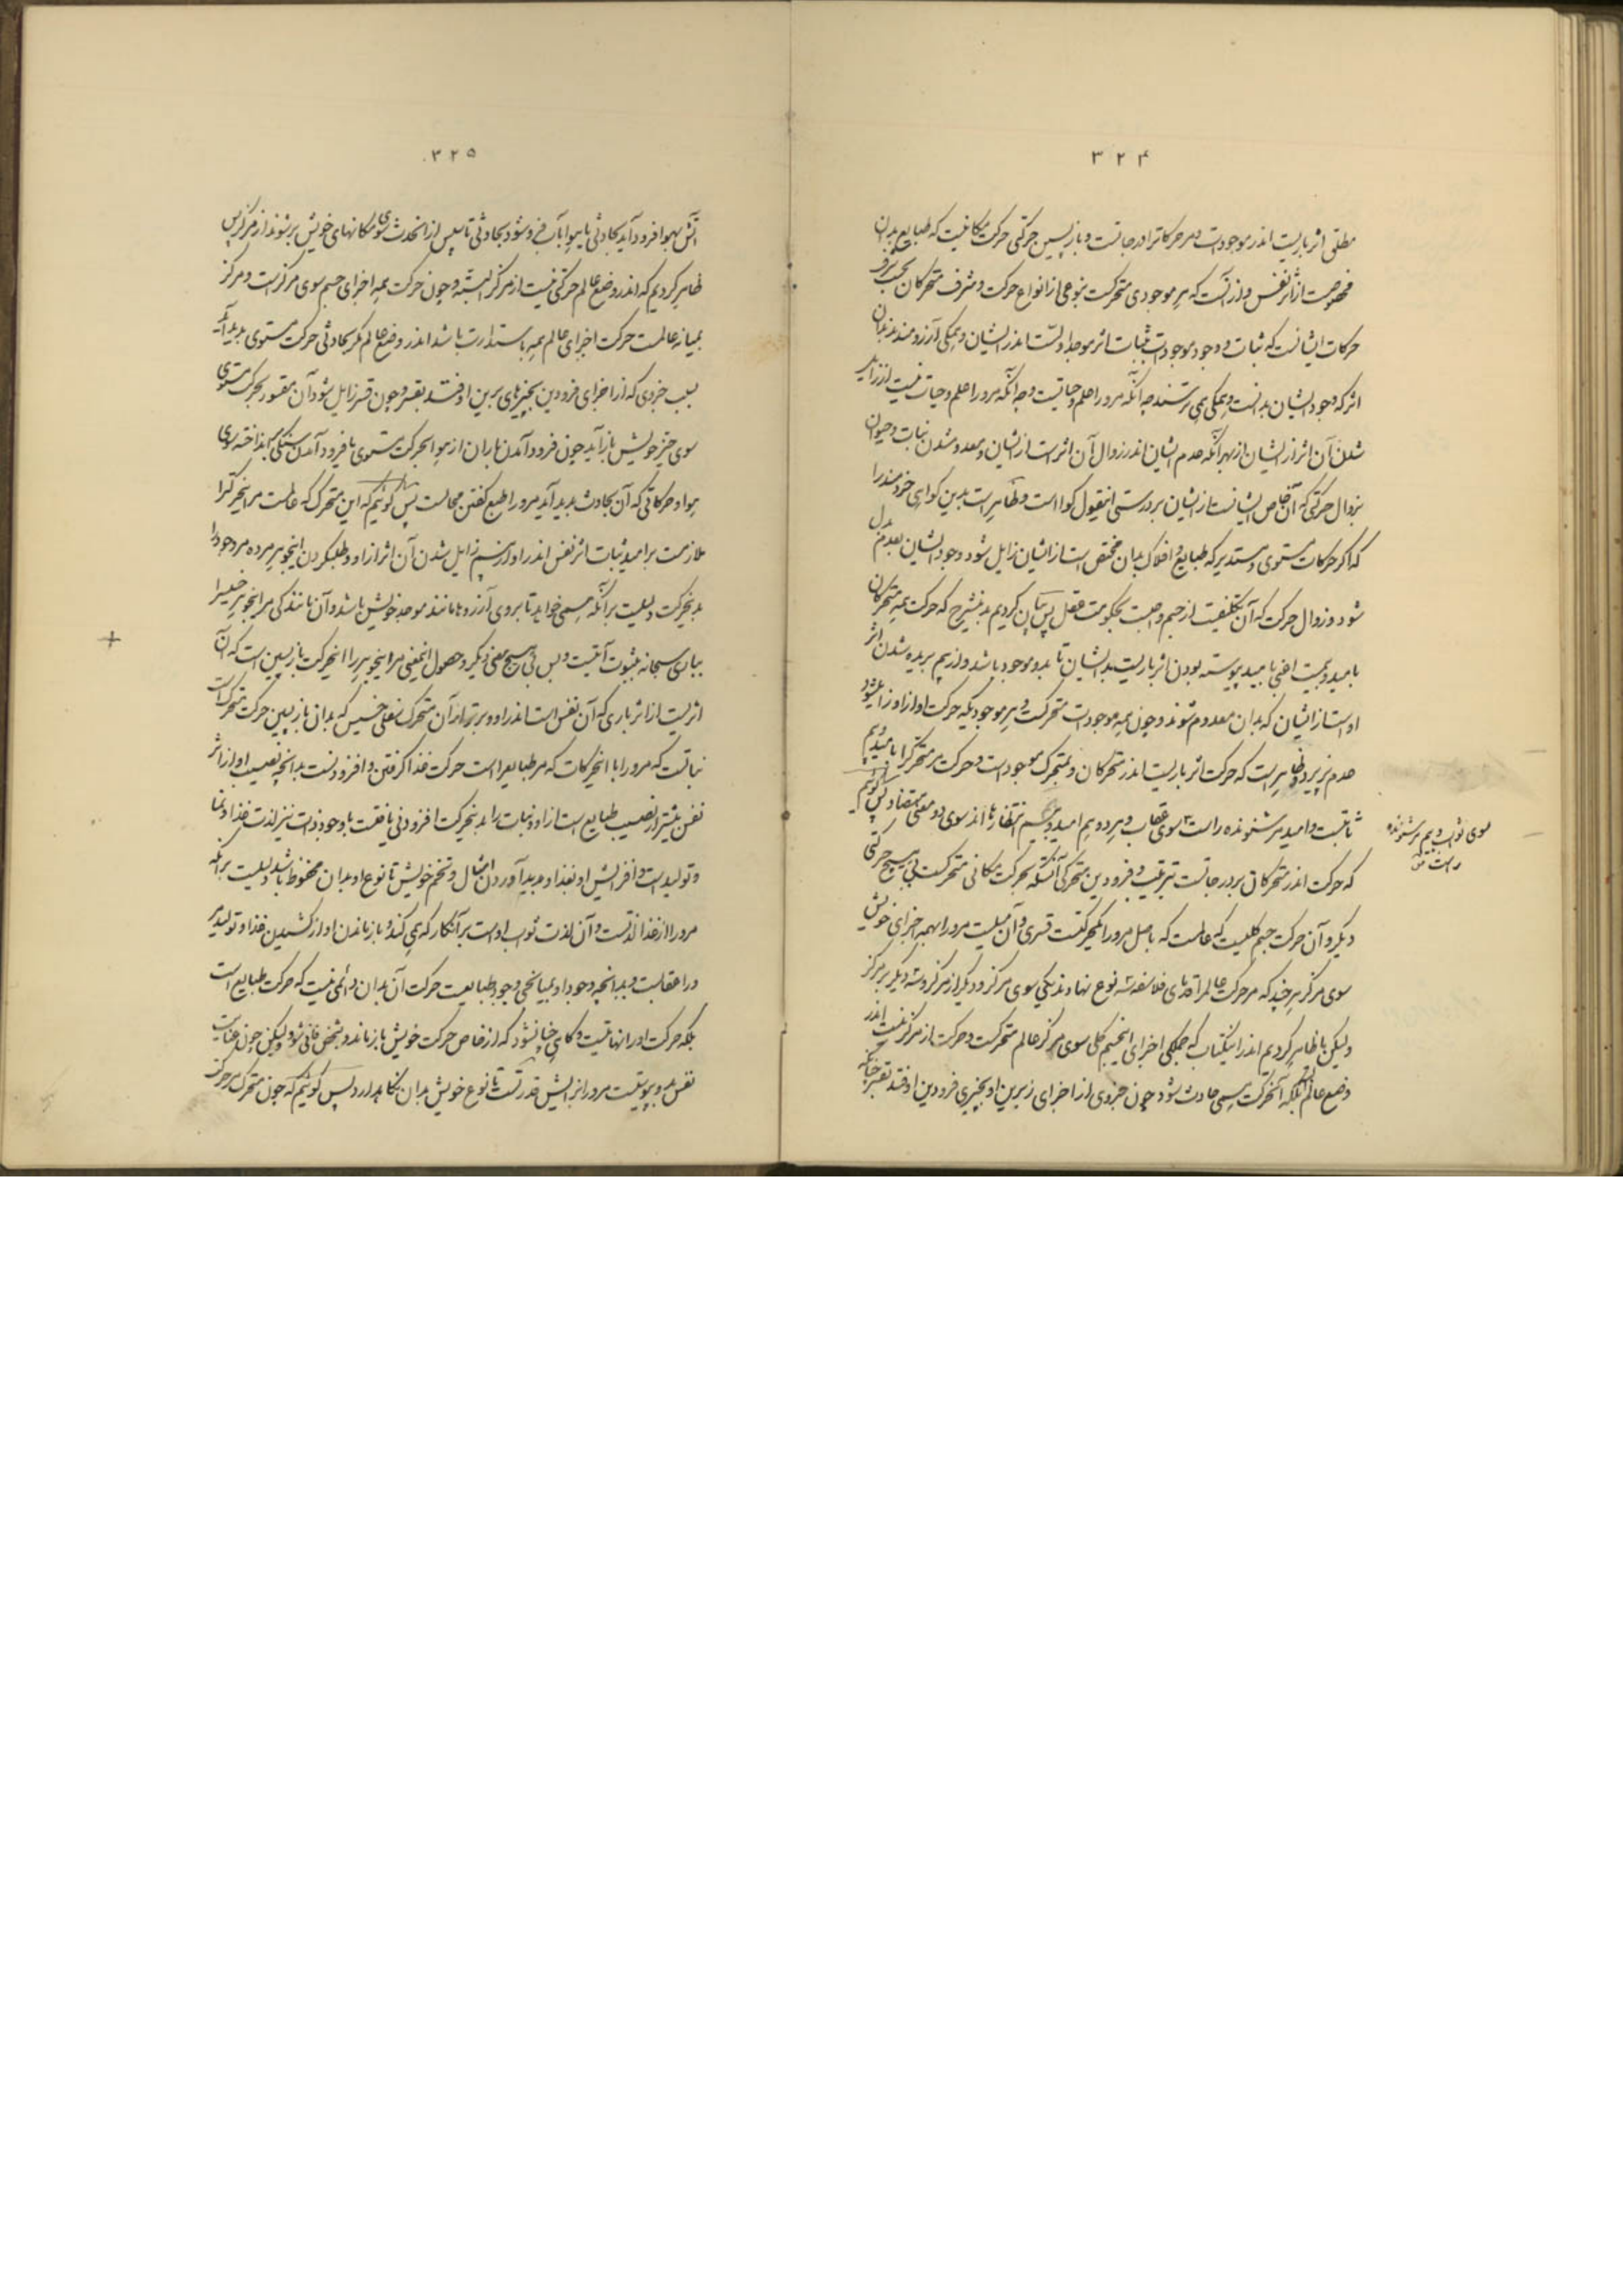 ۳۲۴
مطلق اثر باریست اندر موجودات و مر حرکات را درجاتست و بازپسین حرکتی حرکت مکانیست که طبایع بدان
مخصوصست از اثر نفس و از آنست که هر موجودی متحرکست بنوعی از انواع حرکت و شرف متحرکان بحسب شرف
حرکات ایشانست که ثبات و وجود موجودات بثبات اثر موجد اوست اندر ایشان و همگی آرزومندند بدان
اثر که وجود ایشان بدانست و همگی می‌ترسند چه آنکه مرو را علم و حیاتست و چه آنکه مرو را علم و حیات نیست از زایل
شدن آن اثر از ایشان از بهر آنکه عدم ایشان اندر زوال آن اثر است از ایشان و معدوم شدن نبات و حیوان
بزوال حرکتی که آن خاص ایشانست از ایشان بر درستی اینقول گواست و ظاهر است بدین گواهی خردمند را
که اگر حرکات مستوی و مستدیر که طبایع و افلاک بدان مختص است از ایشان زایل شود وجود ایشان بعدم بدل
شود و زوال حرکت که آن تکلیفیست از جسم واجبست بحکومت عقل پس بیان کردیم بدین شرح که حرکت همه متحرکان
بامید و بیمست اعنی بامید پیوسته بودن اثر باریست بدیشان تا بدو موجود باشد و از بیم بریده شدن اثر
اوست از ایشان که بدان معدوم شوند و چون همه موجودات متحرکست و هر موجودیکه حرکت او از او زایل شود
عدم پذیرد و ظاهر است که حرکت اثر باریست اندر متحرکان و متحرک موجود است و حرکت مر متحرک را بامید و بیم
ثابتست و امید مر شنونده راست سوی عقاب و هر دو بیم امید و بیم انتظارها اند سوی دو معنی متضاد پس گوئیم
که حرکت اندر متحرکان بر درجاتست بترتیب و فرودین متحرکی آنستکه بحرکت مکانی متحرکست بی هیچ حرکتی
دیگر و آن حرکت جسم کلیست که عالمست که باصل مرو را یکحرکتست قسری و آن میلست مرو را بهمه اجزای خویش
سوی مرکز هر چند که مر حرکت عالم را قدمای فلاسفه سه نوع نهادند یکی سوی مرکز و دیگر از مرکز و سه دیگر بر مرکز
ولیکن ما ظاهر کردیم اندر این کتاب که همگی اجزای این جسم کلی سوی مرکز عالم متحرکست و حرکت از مرکز نیست اندر
وضع عالم بلکه آنحرکت همی حادث شود چون جزوی از اجزای زبرین او بچیزی فرودین او فتد بقسر چنانکه
سوی ثواب و بیم مر شنونده
راست
۳۲۵
آتش بهوا فرود آید بحادثی یا هوا بآب فرو شود بحادثی تا سپس از آن حدث سوی مکانهای خویش بر شوند از مرکز پس
ظاهر کردیم که اندر وضع عالم حرکتی نیست از مرکز البته و چون حرکت همه اجزای جسم سوی مرکز است و مرکز
بمیانه عالمست حرکت اجزای عالم همه باستدارت باشد اندر وضع عالم مگر بحادثی حرکت مستوی پدید آید
بسبب جزوی که از اجزای فرودین بچیزهای برین او فتد بقسر و چون قسر زایل شود آن مقسور بحرکت مستوی
سوی حیز خویش باز آید چون فرود آمدن باران از هوا بحرکت مستوی یا فرود آمدن سنگی بر انداخته سوی
هوا و حرکاتی که آن بحادث پدید آید مرو را طبع گفتن محالست پس گوئیم که این متحرک که عالمست مر این حرکت را
ملازمست بر امید ثبات اثر نفس اندر او و از بیم زایل شدن آن اثر از او و طلب کردن اینجوهر مرده مر وجود را
بدین حرکت دلیلست بر آنکه همی خواهد تا بروی آرزو ها مانند موجد خویش باشد و آن مانندگی مر اینجوهر خسیس را
بباری سبحانه بثبوت آنیست و بس بی هیچ معنی دیگر و حصول این معنی مر اینجوهر را این حرکت بازپسین است که آن
اثریست از اثر باری که آن نفس است اندر او و برتر از آن متحرک بفعلی خسیس که بدان بازپسین حرکت متحرکست
نباتست که مرو را با این حرکات که مر طبایع راست حرکت غذا گرفتن و افزودنست بدانچه نصیب او از اثر
نفس بیشتر از نصیب طبایع است از او و نبات را بدین حرکت افزودنی یافتست با وجود ذات نیز لذت غذا و نما
و تولید است و افزایش او بغذا و پدید آوردن امثال و تخم خویش تا نوع او بدان محفوظ باشد دلیلست بر آنکه
مرو را از غذا لذتست و آن لذت ثواب اوست بر آنکار که همی کند و باز ماندن او از کشیدن غذا و تولید مر
او را عقابست و بدانچه وجود او بمیانجی وجود طبایعست حرکت آن بدان دائمی نیست که حرکت طبایع است
بلکه حرکت او را نهایتیست و گاهی چنان شود که از خاص حرکت خویش باز ماند و بشخص فانی شود ولیکن چون عنایت
نفس بدو پیوسته است مرو را بزایش قدرتست تا نوع خویش بدان نگاه دارد پس گوئیم که چون متحرک بر حرکت